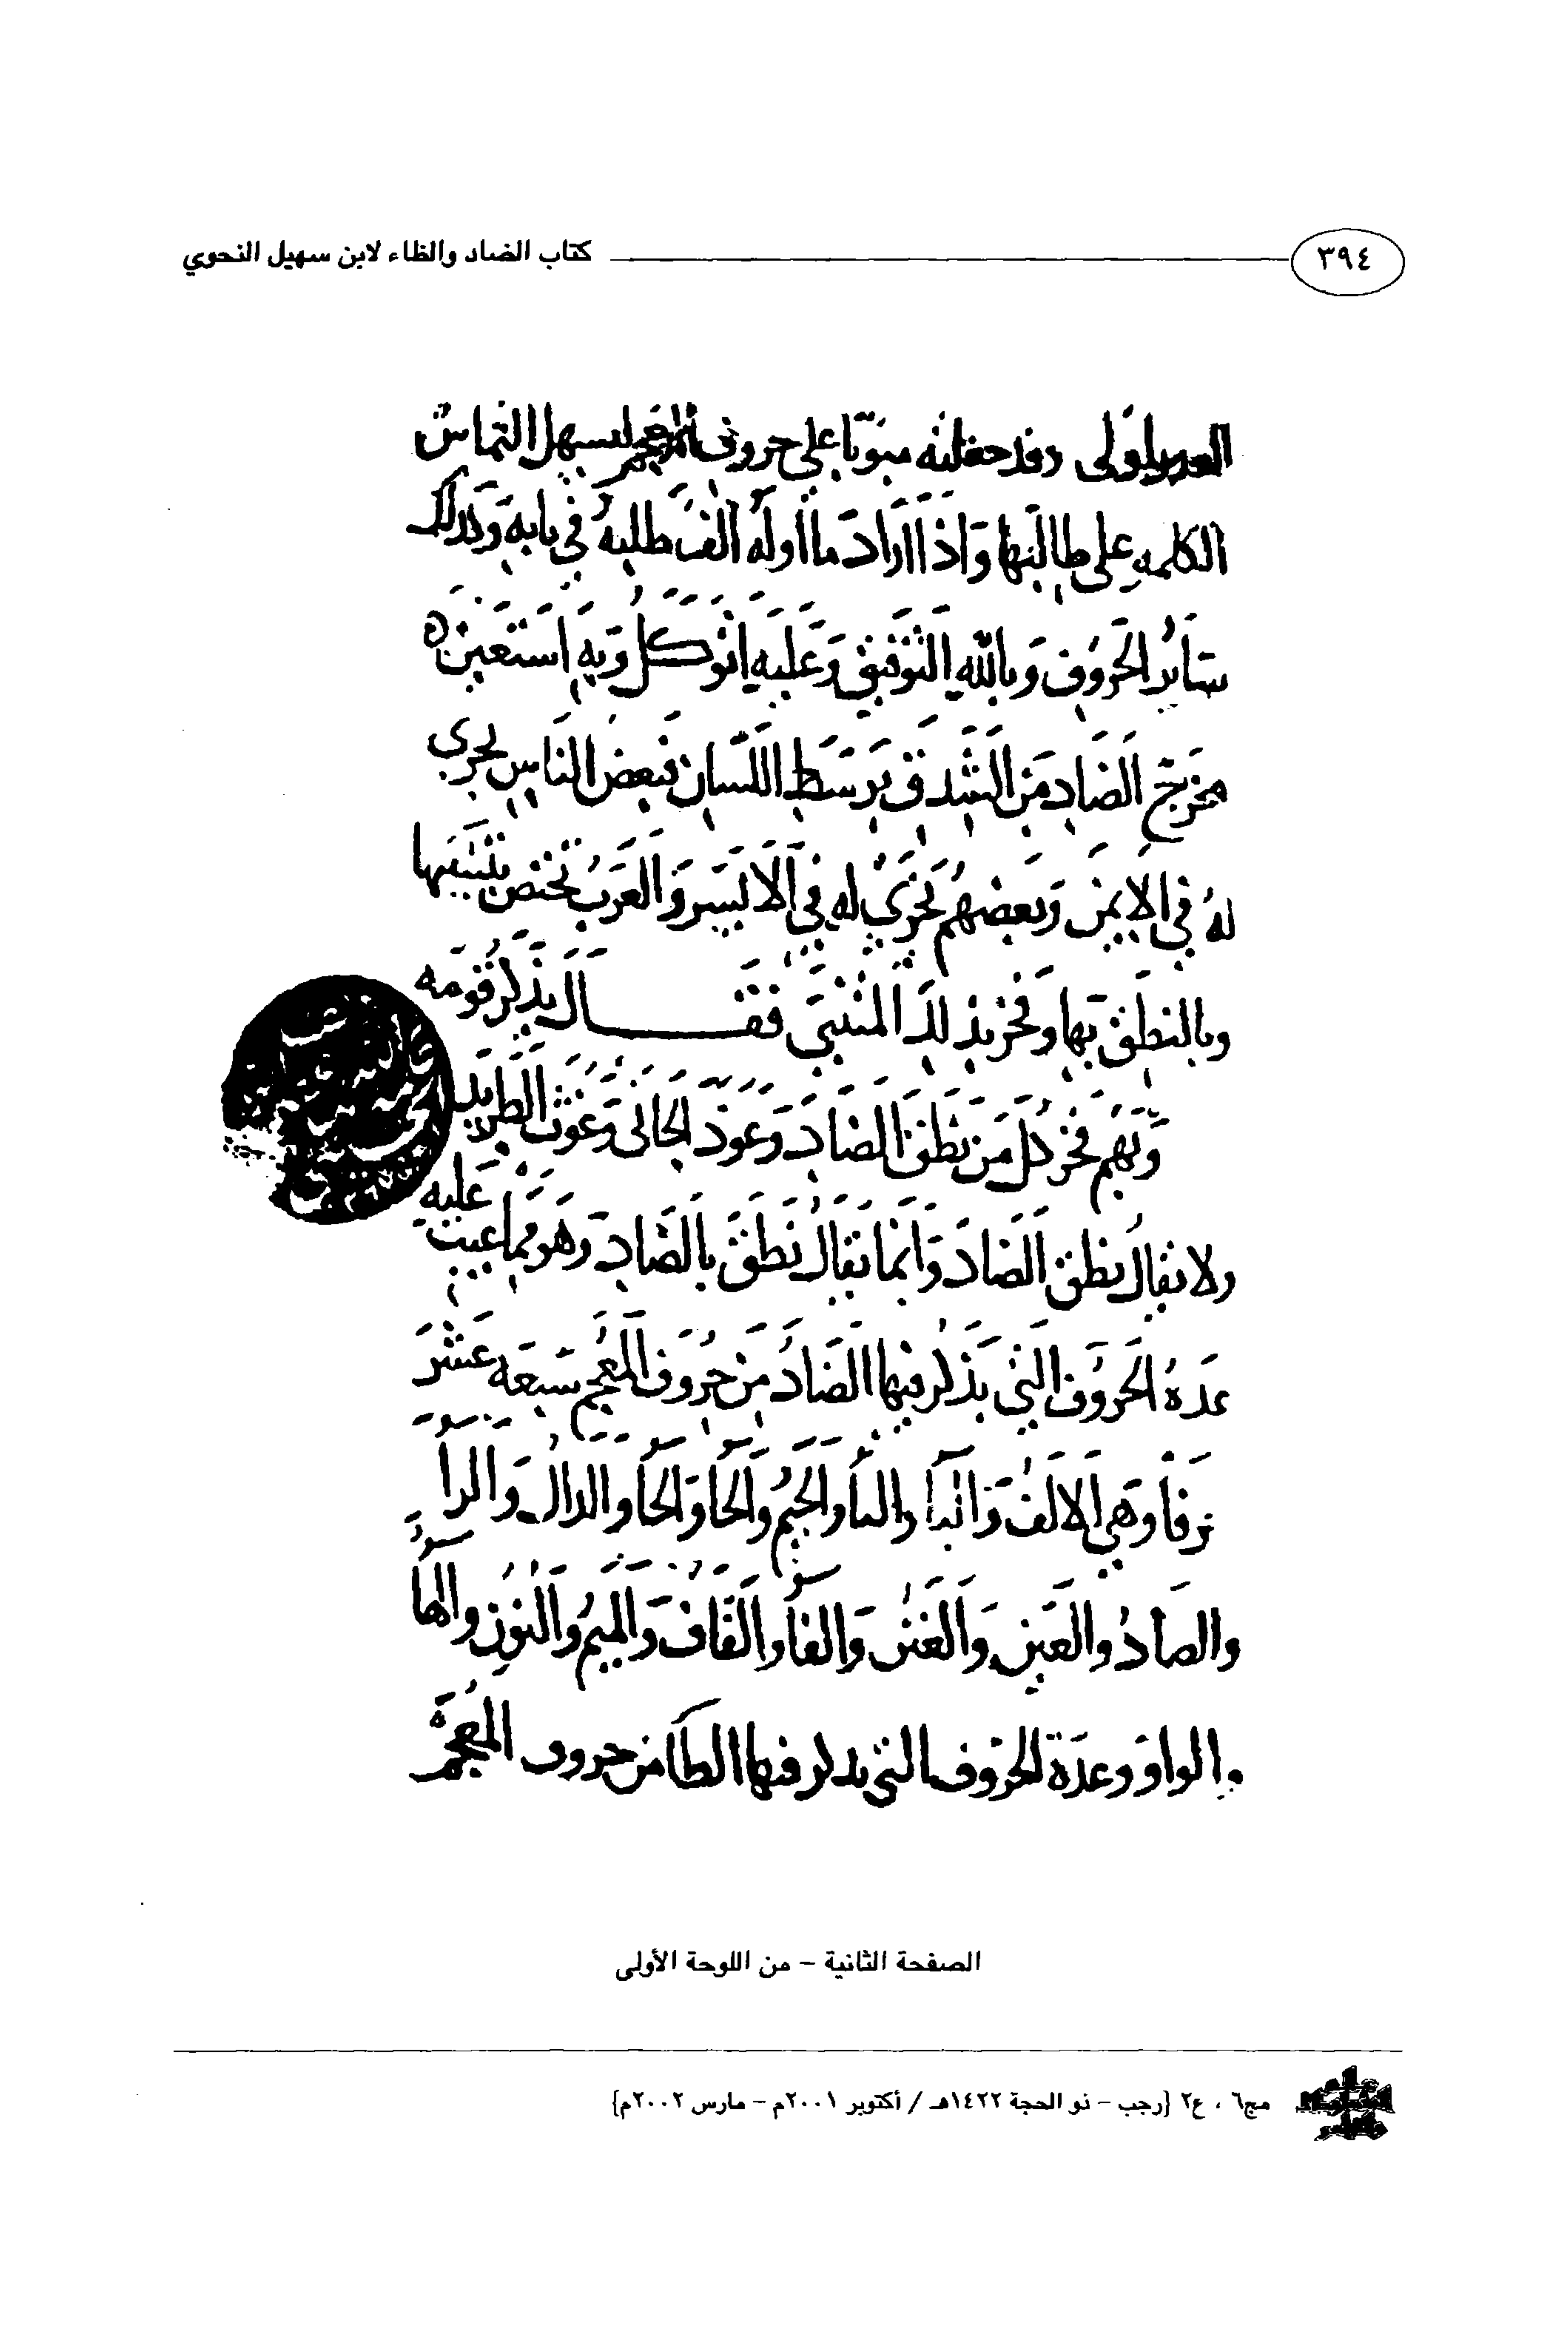 ٣٩٤ كتاب الضاد والظاء لابن سهيل النحوي
وقد جعلته مبوبا على حروف المعجم ليسهل التماس
الكلمة على طالبها وَاذا اراد ما اوله الف طلبه في بابه وكذلك
سَائر الحَروف وبالله التوفيق وَعَليه اتوكل وَبه استعين ه
مخرج الضاد من الشدق من وسط اللسان فبعض الناس يجري
لهُ في الايمن وبعضهم تجري له في الايسر وَالعَربُ تختص بنيتها
وبالنطق بها وفخر بذلك المتنبي فقـــال يذكر قومه
وَبهم فخر كل مَن نطق الضاد وعوذ الجاني وغوث الطريد
ولا يقال نطق الضاد وَانما يقال نطق بالضاد وَهو مما عيب عليه
عدة الحروف التي يذكر فيها الضاد من حُروف المعجم سَبعة عشر
حرفا وهي الالف وَالبا والتا والجيم والحا وَالخا والدال وَالرا
والصاد والعين وَالغين وَالفا والقاف وَالميم والنون والها
والواو وعدة الحروف التي يذكر فيها الظا من حروف المعجم
الصفحة الثانية – من اللوحة الأولى
مج٦ ، ع٢ {رجب – ذو الحجة ١٤٢٢هـ / أكتوبر ٢٠٠١م – مارس ٢٠٠٢م}